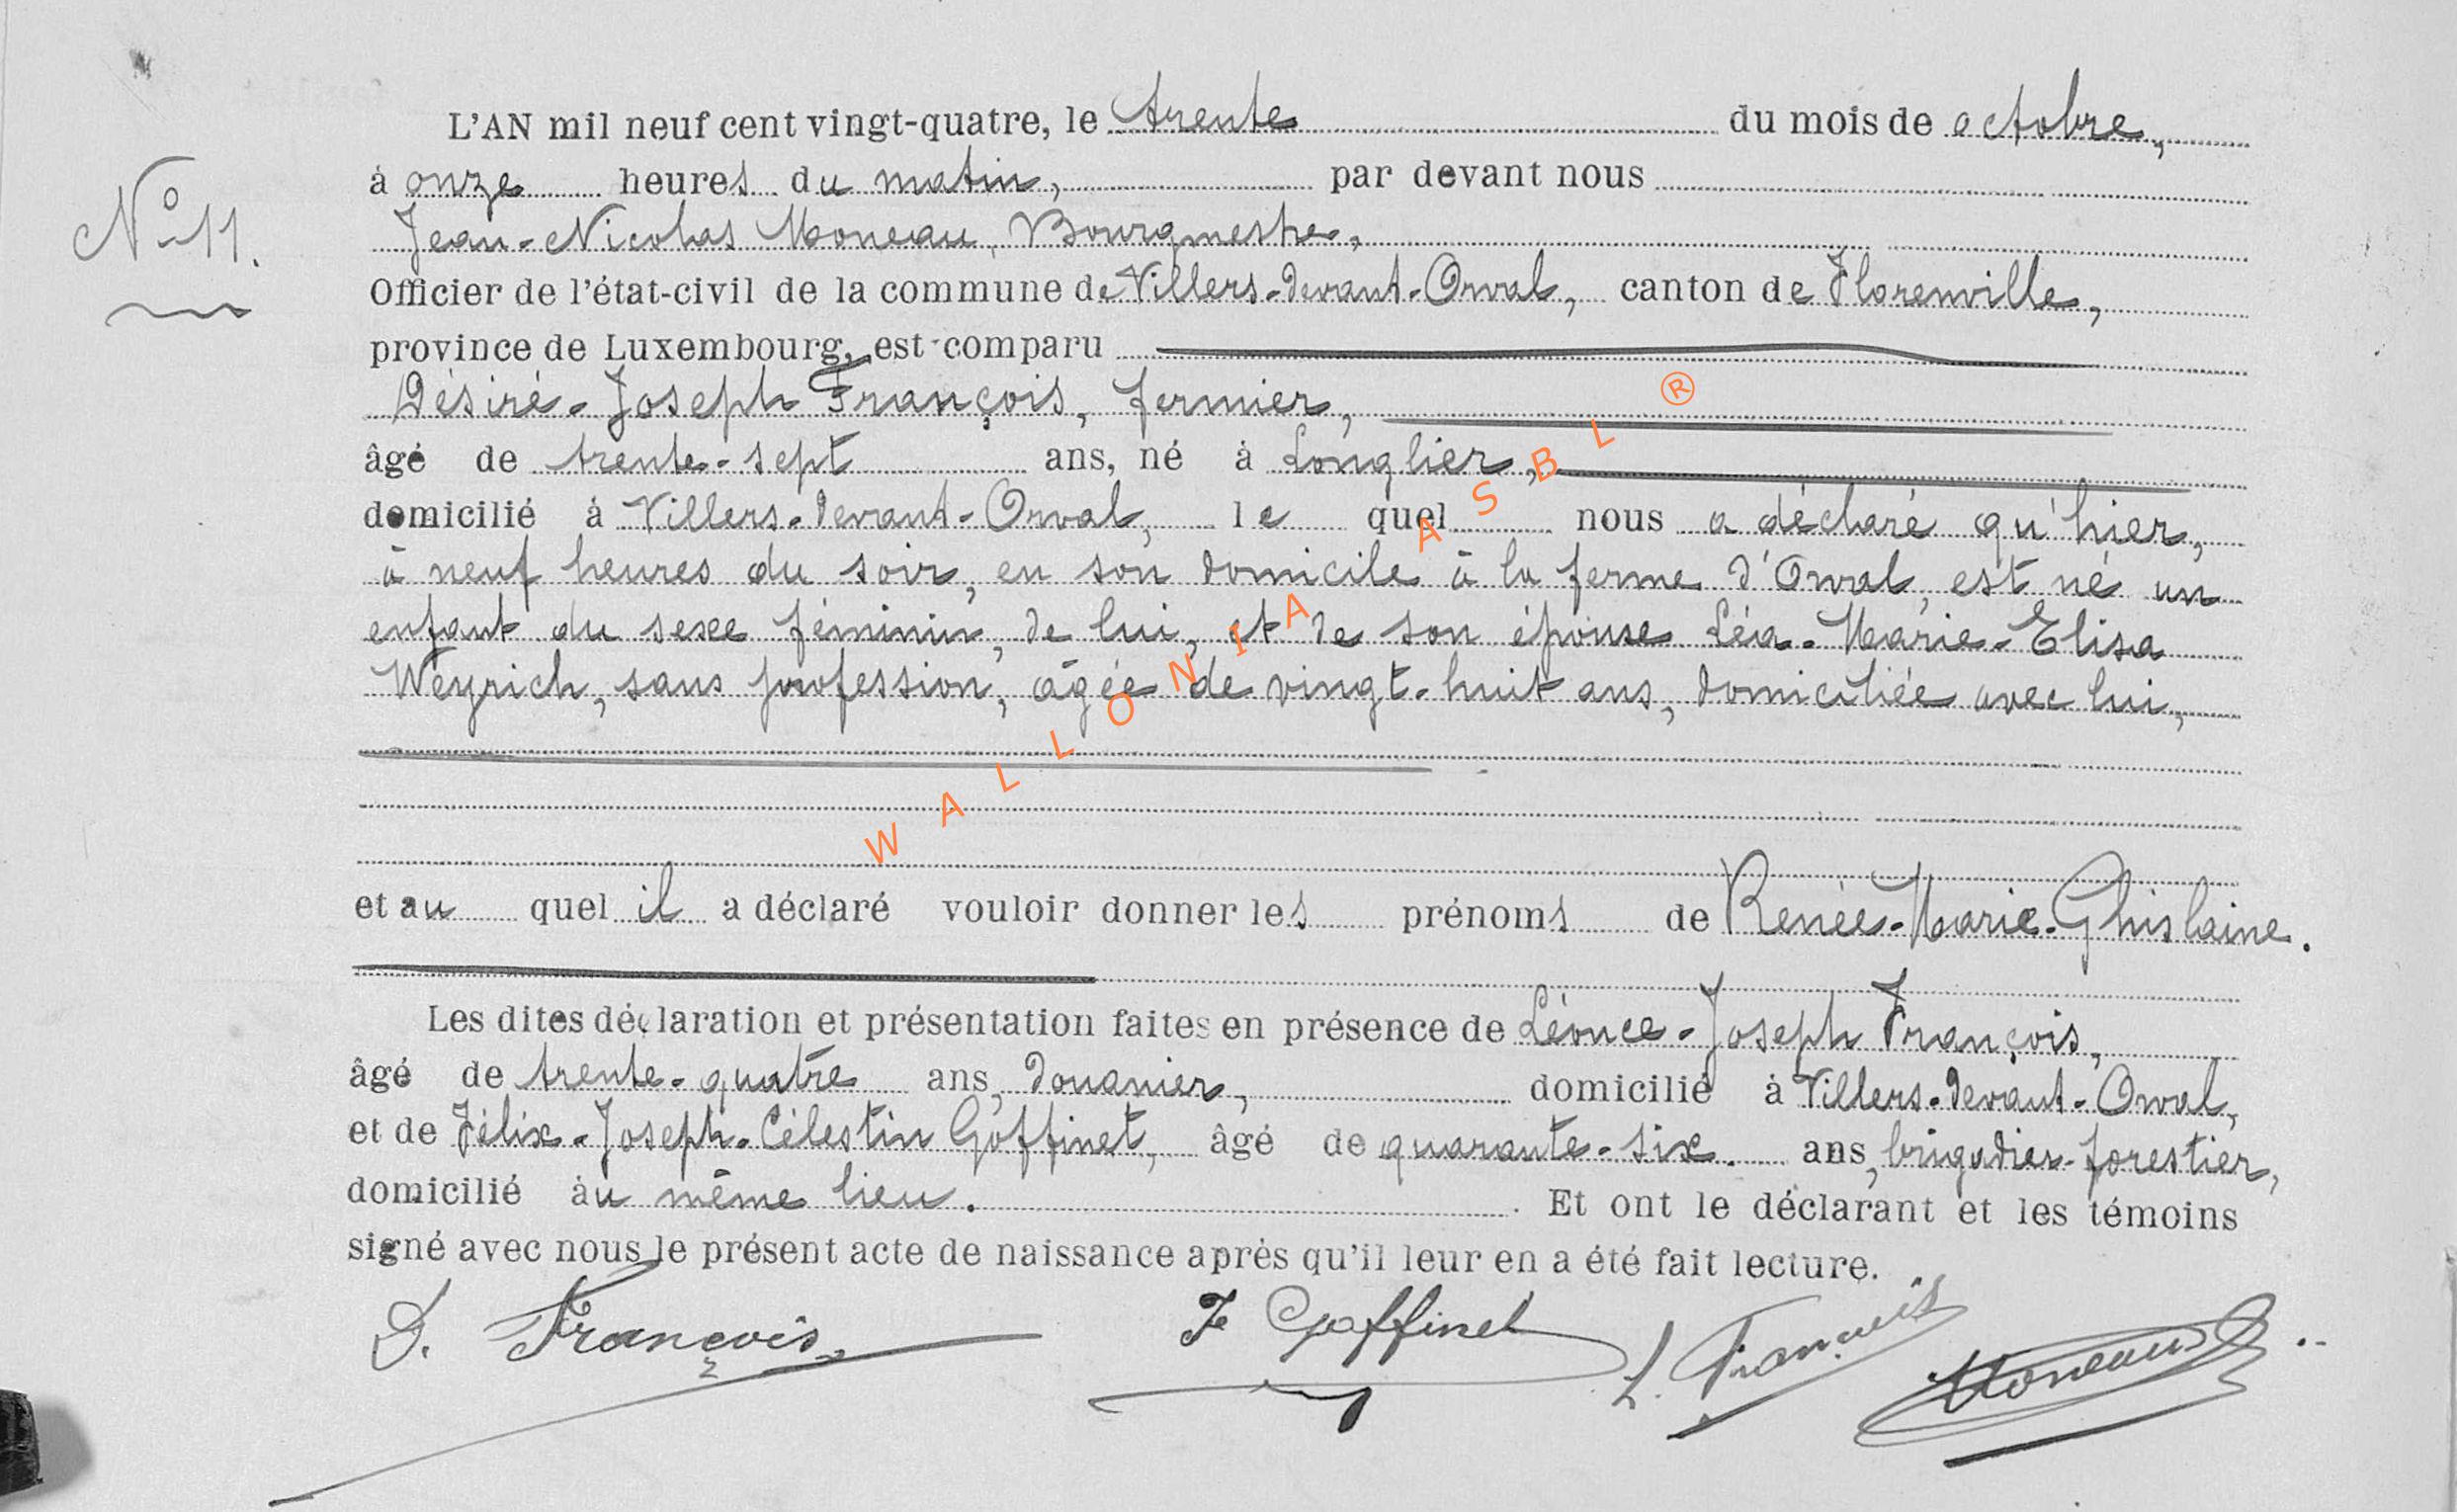 L'AN mil neuf cent vingt-quatre, le trente du mois de octobre,
à onze heures du matin, par devant nous
N° 11.
Jean-Nicolas Moneau, Bourgmestre,
Officier de l'état-civil de la commune de Villers-devant-Orval, canton de Florenville,
province de Luxembourg, est comparu
Désiré-Joseph François, fermier,
âgé de trente-sept ans, né à Longlier,
domicilié à Villers-devant-Orval, le quel nous a déclaré qu'hier,
à neuf heures du soir, en son domicile à la ferme d'Orval, est né un
enfant du sexe féminin, de lui, et de son épouse Léa-Marie-Elisa
Weyrich, sans profession, âgée de vingt-huit ans, domiciliée avec lui,
WALLONIA ASBL ®
et au quel il a déclaré vouloir donner les prénoms de Renée-Marie-Ghislaine.
Les dites déclaration et présentation faites en présence de Léonce-Joseph François,
âgé de trente-quatre ans, douanier, domicilié à Villers-devant-Orval,
et de Félix-Joseph-Célestin Goffinet, âgé de quarante-six ans, brigadier-forestier,
domicilié au même lieu. Et ont le déclarant et les témoins
signé avec nous le présent acte de naissance après qu'il leur en a été fait lecture.
D. François F Goffinet L. François Moneau